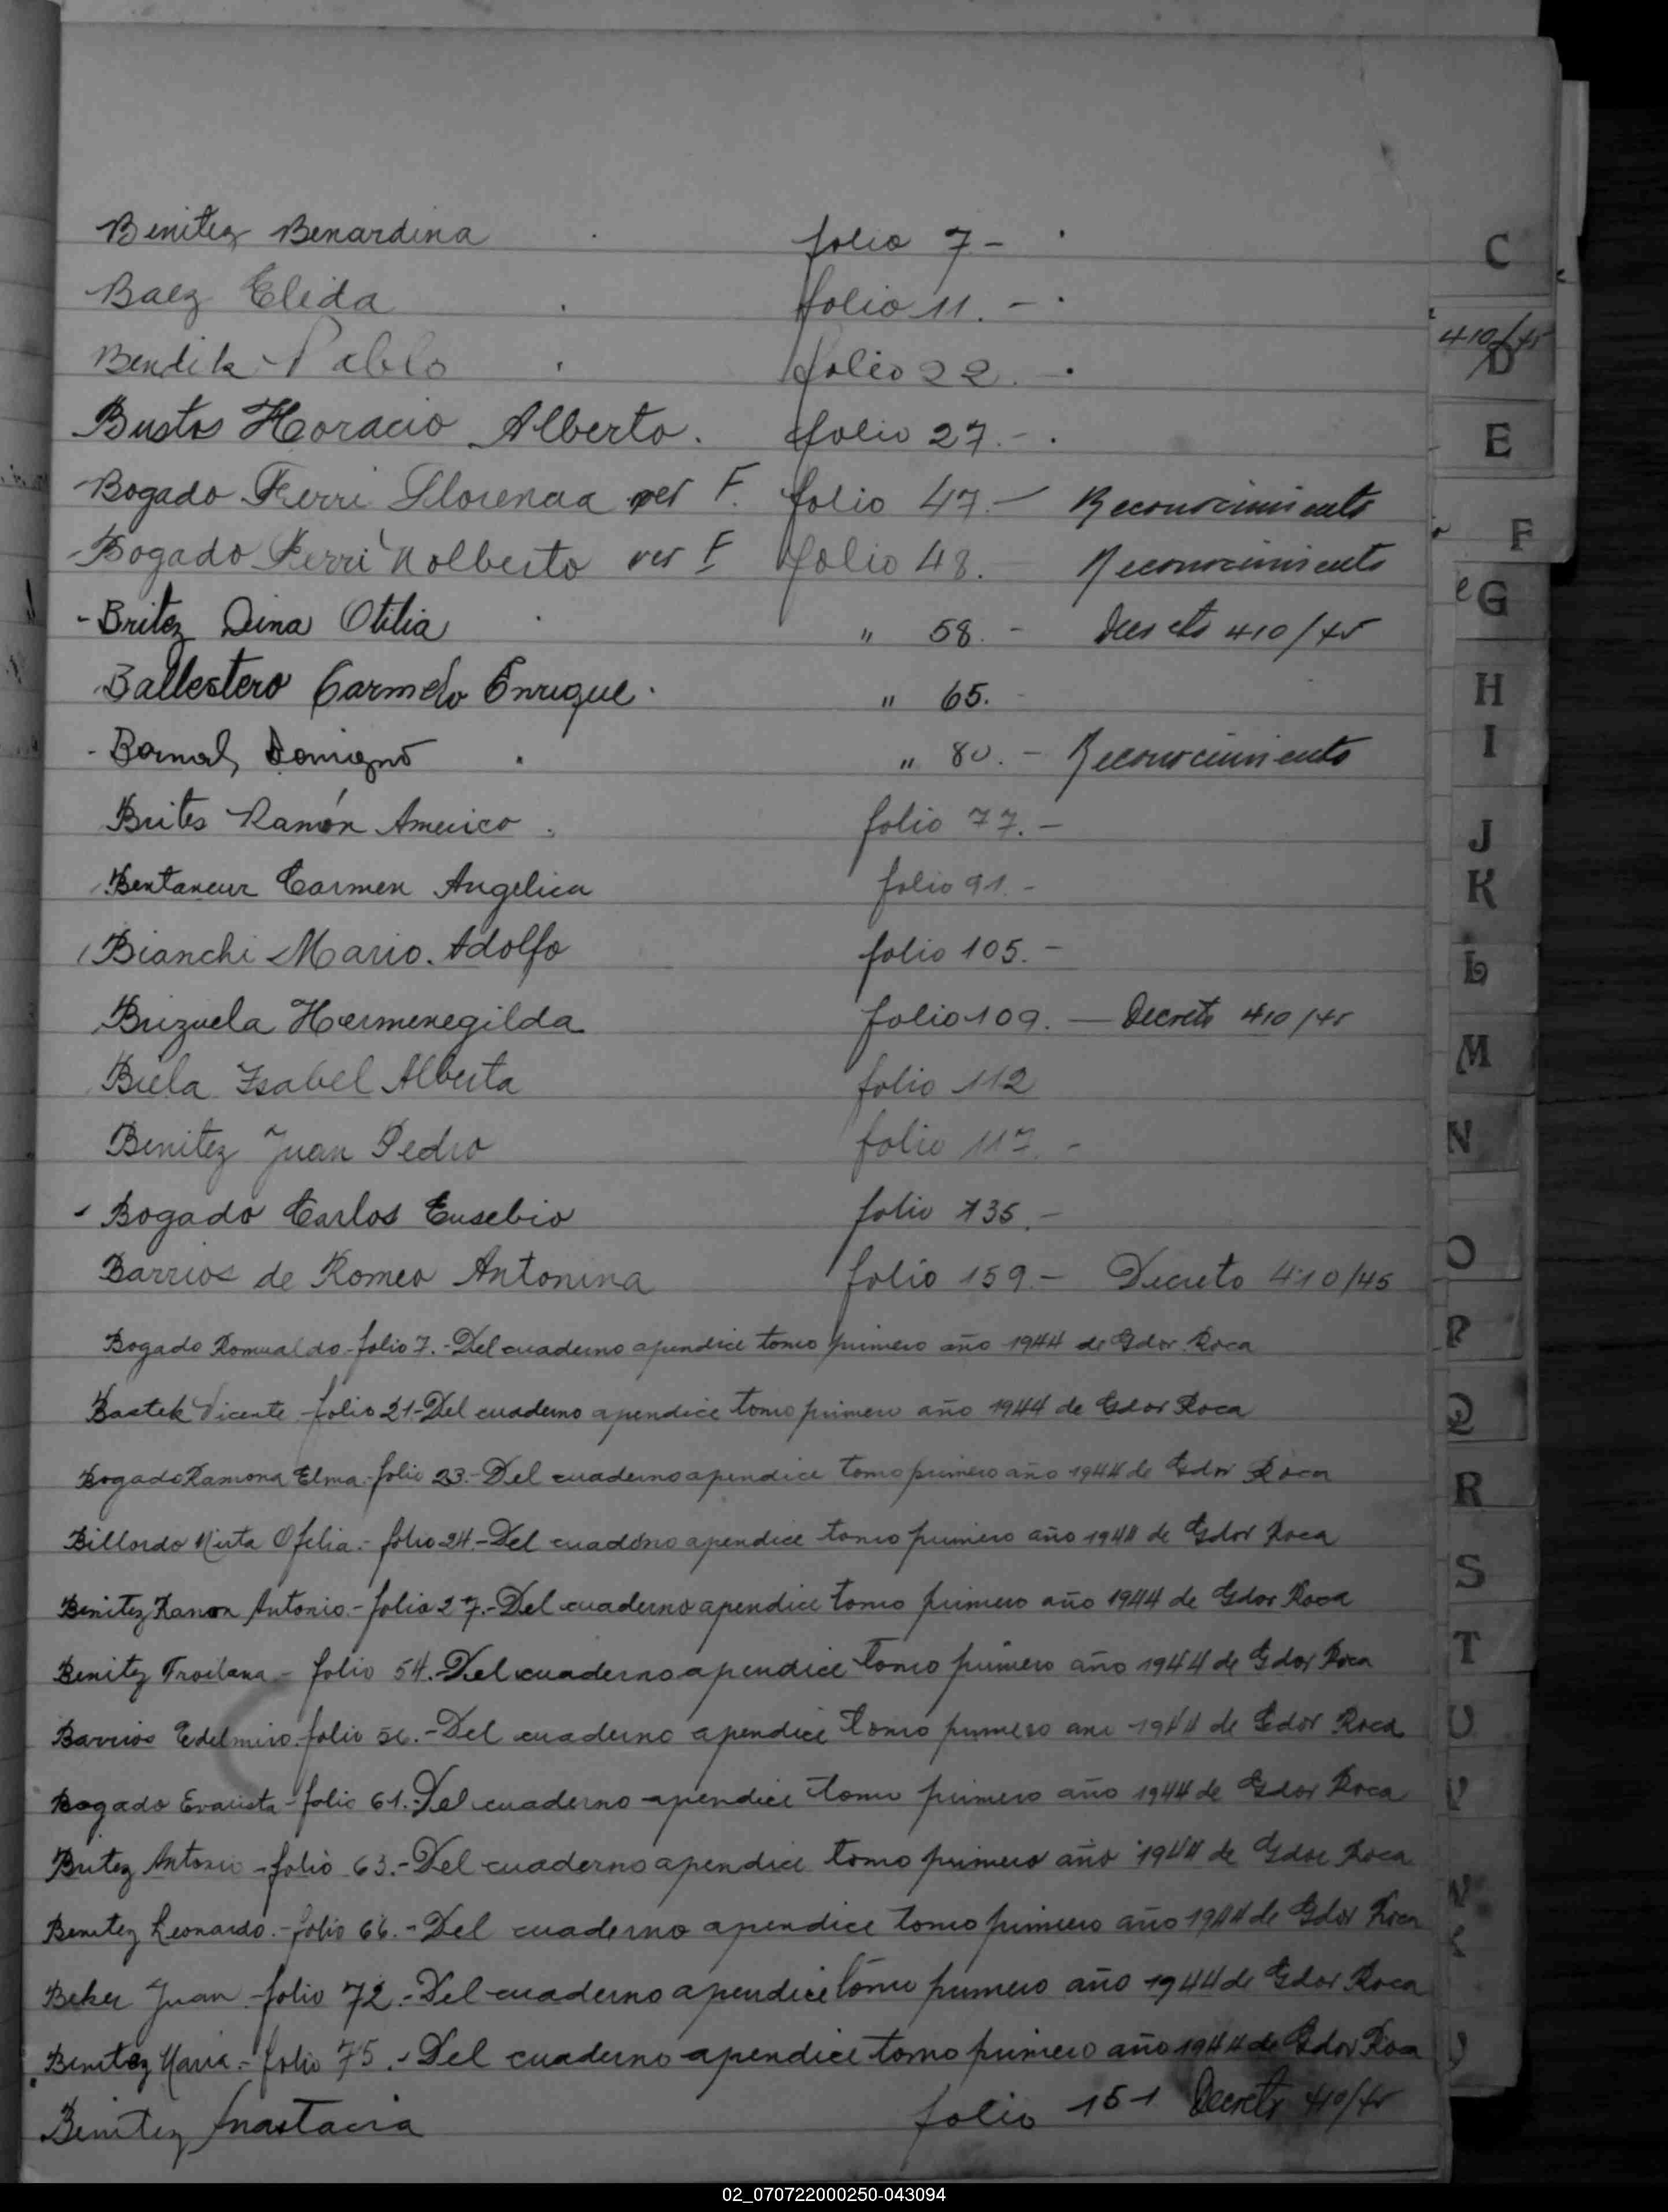 Benitez Benardina folio 7.-
Baez Elida folio 11.-
Bendik Pablo folio 22.
Bustos Horacio Alberto. folio 27.-
Bogado Ferri Florencia ver F. folio 47.- Reconocimiento
Bogado Ferri Nolberto ver F folio 48. Reconocimiento
- Britez Dina Otilia " 58.- Decreto 410/45
Ballestero Carmelo Enrique. " 65.
- Bernal, " 80.- Reconocimiento
Brites Ramón Americo folio 77.-
Bentancur Carmen Angelica folio 91.-
Bianchi Mario Adolfo folio 105.-
Brizuela Hermenegilda folio 109. — Decreto 410/45
Biela Isabel Alberta folio 112
Benitez Juan Pedro folio 117.-
Bogado Carlos Eusebio folio 135.-
Barrios de Romeo Antonina folio 159.- Decreto 410/45
Bogado Romualdo-folio 7.-Del cuaderno apendice tomo primero año 1944 de Gdor. Roca
Bastek Vicente folio 21-Del cuaderno apendice tomo primero año 1944 de Gdor Roca
Bogado Ramona Elma.-folio 23.-Del cuaderno apendice tomo primero año 1944 de Gdor Roca
Billordo Mirta Ofelia.-folio 24.-Del cuaderno apendice tomo primero año 1944 de Gdor Roca
Benitez Ramon Antonio.-folio 27.-Del cuaderno apendice tomo primero año 1944 de Gdor Roca
Benitez Troilana.- folio 54.-Del cuaderno apendice tomo primero año 1944 de Gdor Roca
Barrios Edelmiro.folio 56.-Del cuaderno apendice tomo primero año 1944 de Gdor Roca
Bogado Evarista-folio 61.-Del cuaderno apendice tomo primero año 1944 de Gdor Roca
Britez Antonio-folio 63.-Del cuaderno apendice tomo primero año 1944 de Gdor Roca
Benitez Leonardo.-folio 66.-Del cuaderno apendice tomo primero año 1944 de Gdor Roca
Beker Juan folio 72.-Del cuaderno apendice tomo primero año 1944 de Gdor Roca
Benitez Maria.-folio 75.-Del cuaderno apendice tomo primero año 1944 de Gdor Roca
Benitez Anastacia folio 151 Decreto 410/45
C
410/45
D
E
F
G
H
I
J
K
L
M
N
O
P
Q
R
S
T
U
V
02_070722000250-043094